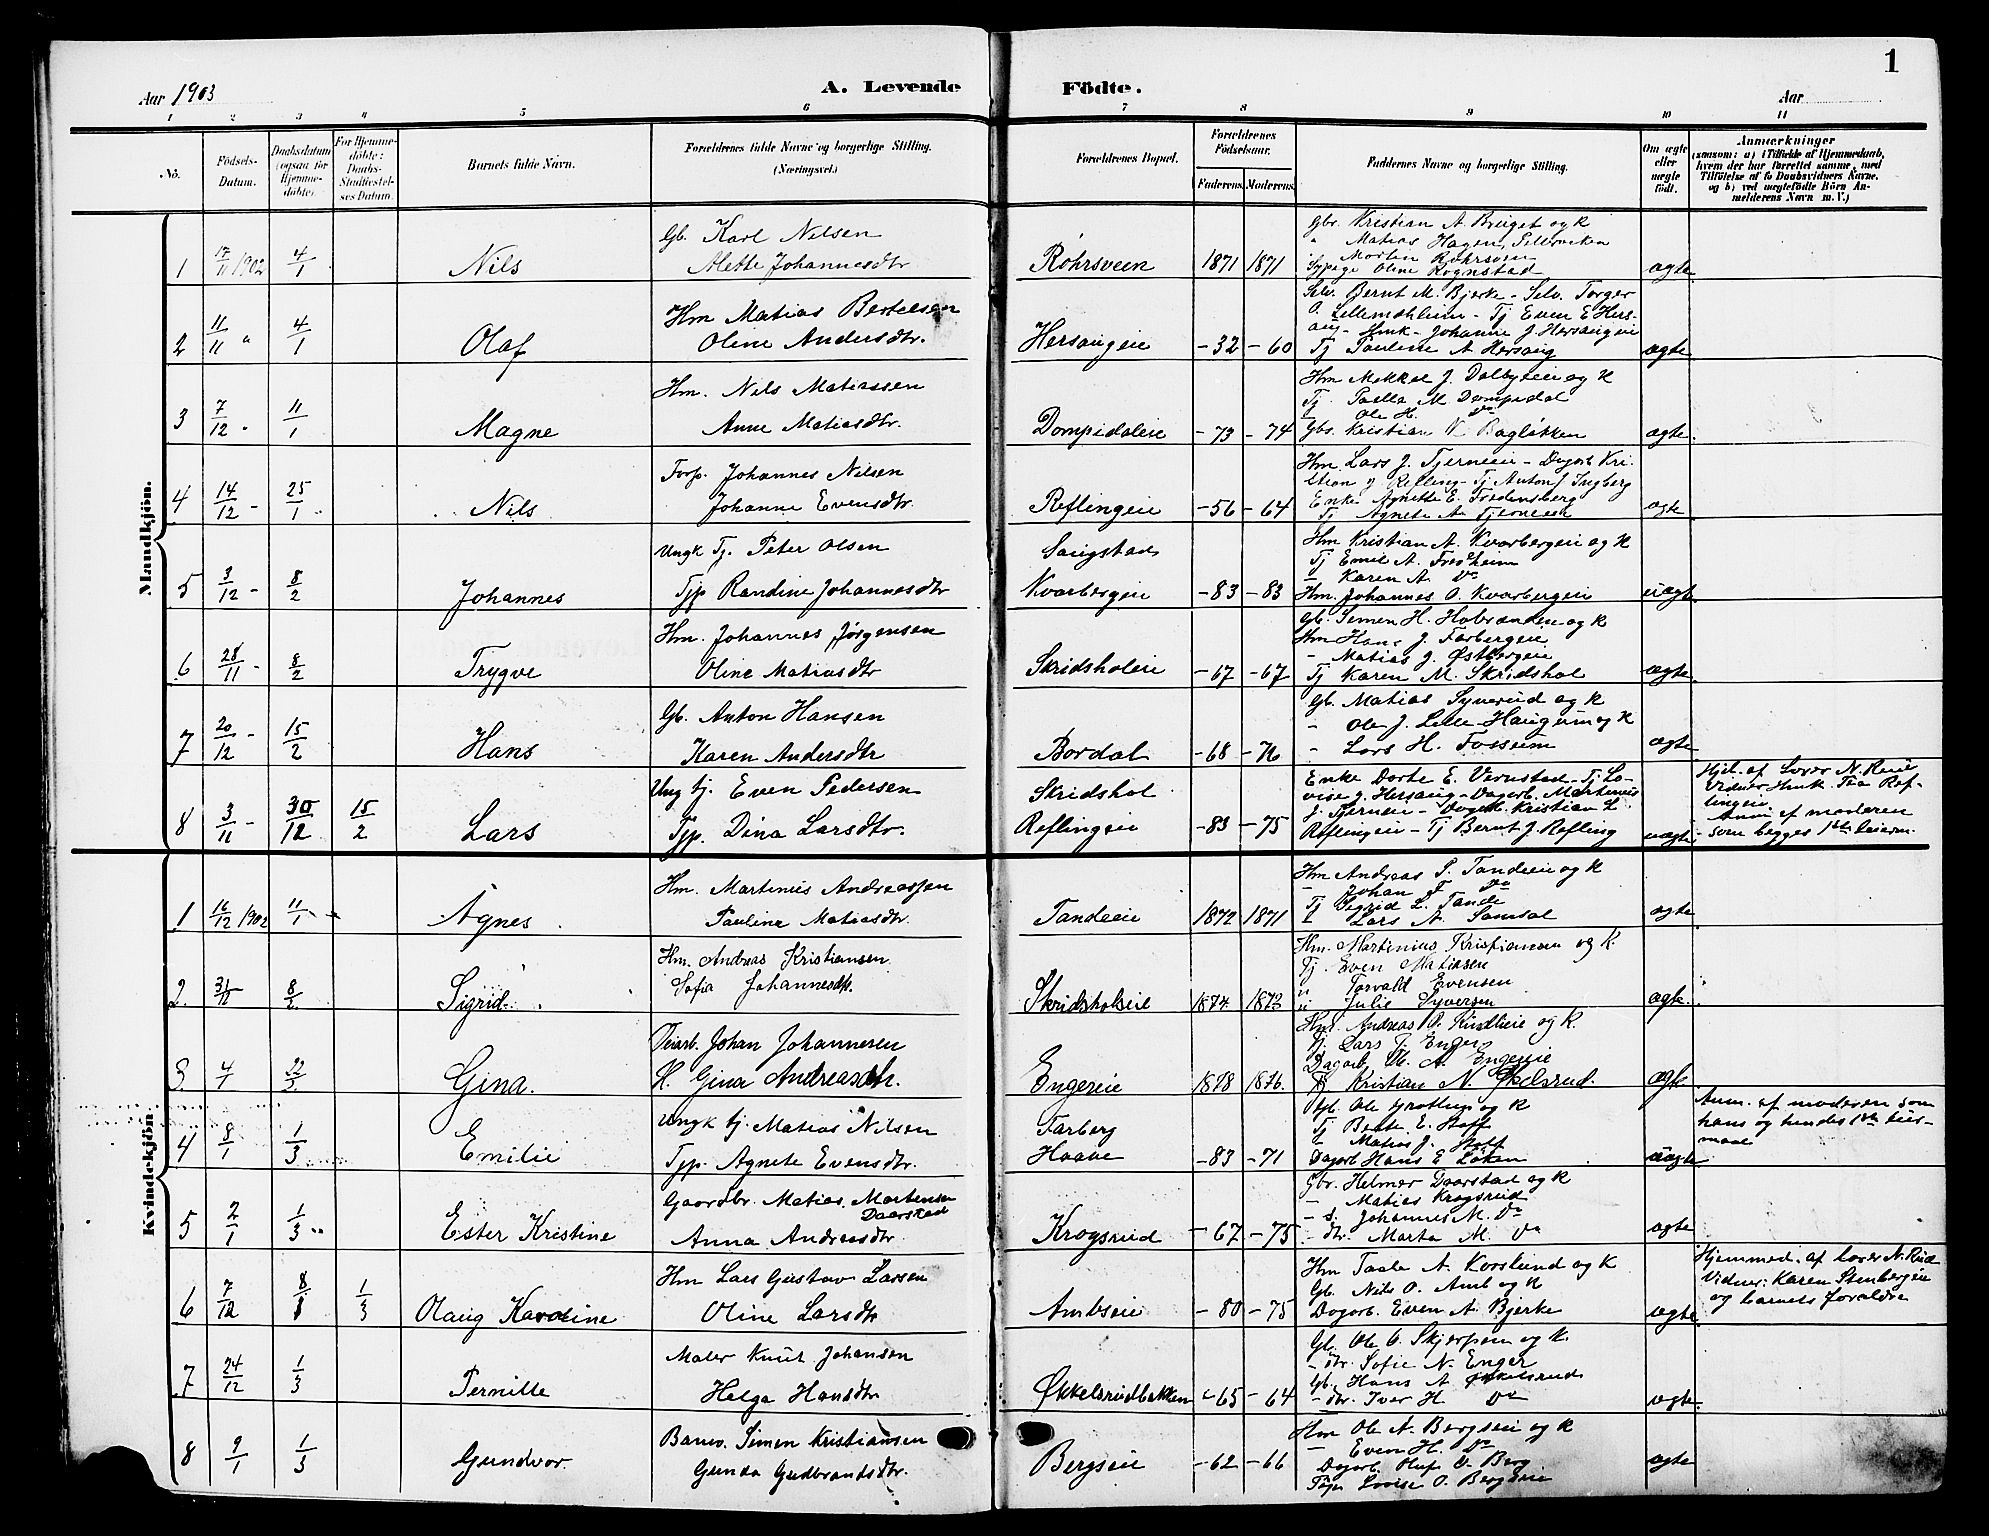 1
Aar 1903
A. Levende Födte.
Aar
1 2 3 4 5 6 7 8 9 10 11
No.
Födsels-Datum.
Daabsdatum (ogsaa for Hjemme-døbte).
For Hjemme-döbte: Daabs-Stadfæstel-ses Datum.
Barnets fulde Navn.
Forældrenes fulde Navne og borgerlige Stilling. (Næringsvei.)
Forældrenes Bopæl.
Forældrenes Födselsaar.
Faderens. Moderens.
Faddernes Navne og borgerlige Stilling.
Om ægte eller uægte födt.
Anmærkninger
(saasom: a) i Tilfælde af Hjemmedaab,
hvem der har forrettet samme, med
Tilföielse af to Daabsvidners Navne,
og b) ved uægtefödte Börn An-
melderens Navn m. V.)
Mandkjön.
1 17/11 1902 4/1 Nils
Gb. Karl Nilsen
Alette Johannesdtr
Röhrsveen 1871 1871
Gbr. Kristian A. Bruget og K
" Matias Hagen,
Morten Röhrsveen
Sypige Oline Rognstad
ægte
2 11/11 " 4/1 Olaf
Hm Matias Bertelsen
Oline Andersdtr.
Hersaugeie -32 -60
Selv. Bernt M. Bjerke - Selv. Torger
O. Lillemæhleim - Tj Even E Hers-
aug - Hmk - Johanne J. Hersaugeie
Tj Pauline A Hersaug
ægte
3 7/12 " 11/1 Magne
Hm. Nils Matiassen
Anne Matiasdtr.
Dompidaleie -73 -74
Hm Mekkel J. Dalbyeie og K
Tj. Paella M Dompidal
Ole H. Do
Gbs. Kristian N. Bagløkken
ægte.
4 14/12 - 25/1 Nils
Forp. Johannes Nilsen
Johanne Evensdtr.
Reflingeie -56 -64
Hm. Lars J. Tjerneie - Dagarb Kri-
stian J Refling - Tj Anton J Ingberg
Enke Agnette E. Fredensberg
Tj Agnete A. Tjerneeie
ægte
5 3/12 - 8/2 Johannes
Ungk Tj. Peter Olsen
Tjp Randine Johannesdtr
Saugstad
Kvarbergeie -83 -83
Hm Kristian A. Kvarbergeie og K
Tj Emil A. Fredheim
- Karen A Do
Hm. Johannes O. Kvarbergeie
uægt.
6 28/11 - 8/2 Trygve
Hm. Johannes Jørgensen
Oline Matiasdtr
Skridsholeie -67 -67
Gb. Simen H. Halbranden og K
Hm Hans J. Farbergeie
- Matias J. Østbergeie
Tj Karen M. Skridshol
ægte.
7 20/12 - 15/2 Hans
Gb. Anton Hansen
Karen Andersdtr
Bordal -68 -76
Gb. Matias Synerud og K
- Ole J. Lille-Haugum og K
- Lars H. Fossum
ægte
8 3/11 - 30/12 15/2 Lars
Ung tj. Even Pedersen
Tjp. Dina Larsdtr.
Skridshol
Reflingeie -83 -75
Enke Dorte E. Vernstad - Tj Lo-
vise J. Hersaug - Dagarb. Martenus
J. Tjerneie - Dagarb Kristian L.
Reflingeie - Tj Bernt J. Refling
uægte
Hjd. af Lærer N. Reie
Vidner Hmk. Tea Ref-
lingeie.
Anm. af moderen
som begges 1ste leierm.
Kvindekjön
1 16/12 1902 11/1 Agnes
Hm. Martinius Andreassen
Pauline Matiasdtr.
Tandeeie 1872 1871
Hm Andreas P. Tandeeie og K
- Johan F Do
Tj Sigrid L. Tande
Lars A. Samsal
ægte
2. 8/2 Sigrid
Hm. Andreas Kristiansen
Sofia Johannesdtr.
Skridsholseie 1874 1873
Hm. Martinius Kristiansen og K.
Tj. Even Matiasen
" Torvald Evensen
" Julie Syversen
ægte.
3 4/1 22/2 Gina.
Johan Johannesen
H. Gina Andreasdtr.
Engereie 1878 1876.
Hm. Andreas P. Kindlieie og K.
Tj. Lars Tj. Enger
Dagarb. M. A. Engereie
Kristian N. Økelsrud.
ægte
4 8/1 1/3 Emilie
Ungk tj. Matias Nilsen
Tjp. Agnete Evensdtr.
Farberg
Haave -83 -71
Gb. Ole Grottup og K
Tj Beate E. Hoff
Matias J. Hoff
Dagarb Hans E Løken
uægte
Anm. af moderen som
hans og hendes 1ste leier-
maal
5 2/1 1/3 Ester Kristine
Gaardbr. Matias Martensen
Daarstad
Anna Andreasdtr.
Krogsrud -67 -75
Gbr. Helmer Daarstad og K
- Matias Krogsrud
- s. Johannes M. Do
- dtr. Marta M. Do
ægte
6 7/12 8/1 1/3 Olaug Karoline
Hm Lars Gustav Larsen
Oline Larsdtr
Ambseie -80 -75
Hm Taale A. Korslund og K
Gb. Nils O. Amb og K
Dagarb. Even A. Bjerke
ægte
Hjemmed. af Lærer N. Reie
Vidner: Karen Stenbergeie
og barnets forældre
7 24/12 1/3 Pernille
Maler Knut Johansen
Helga Hansdtr
Økkelsrudbakken -65 -64
Gb. Ole O. Skjerpen og K.
- dtr. Sofie N. Enger
Gb. Hans A Økkelsrud
- dtr. Iver H Do
ægte.
8 9/1 1/3 Gundvor.
Banev. Simen Kristiansen
Gunda Gudbrandsdtr.
Bergseie -62 -66
Hm Ole N. Bergseie og K
- Even H. Do
Dagarb. Oluf O. Berg
Tjp. Lovise O. Bergseie
ægte